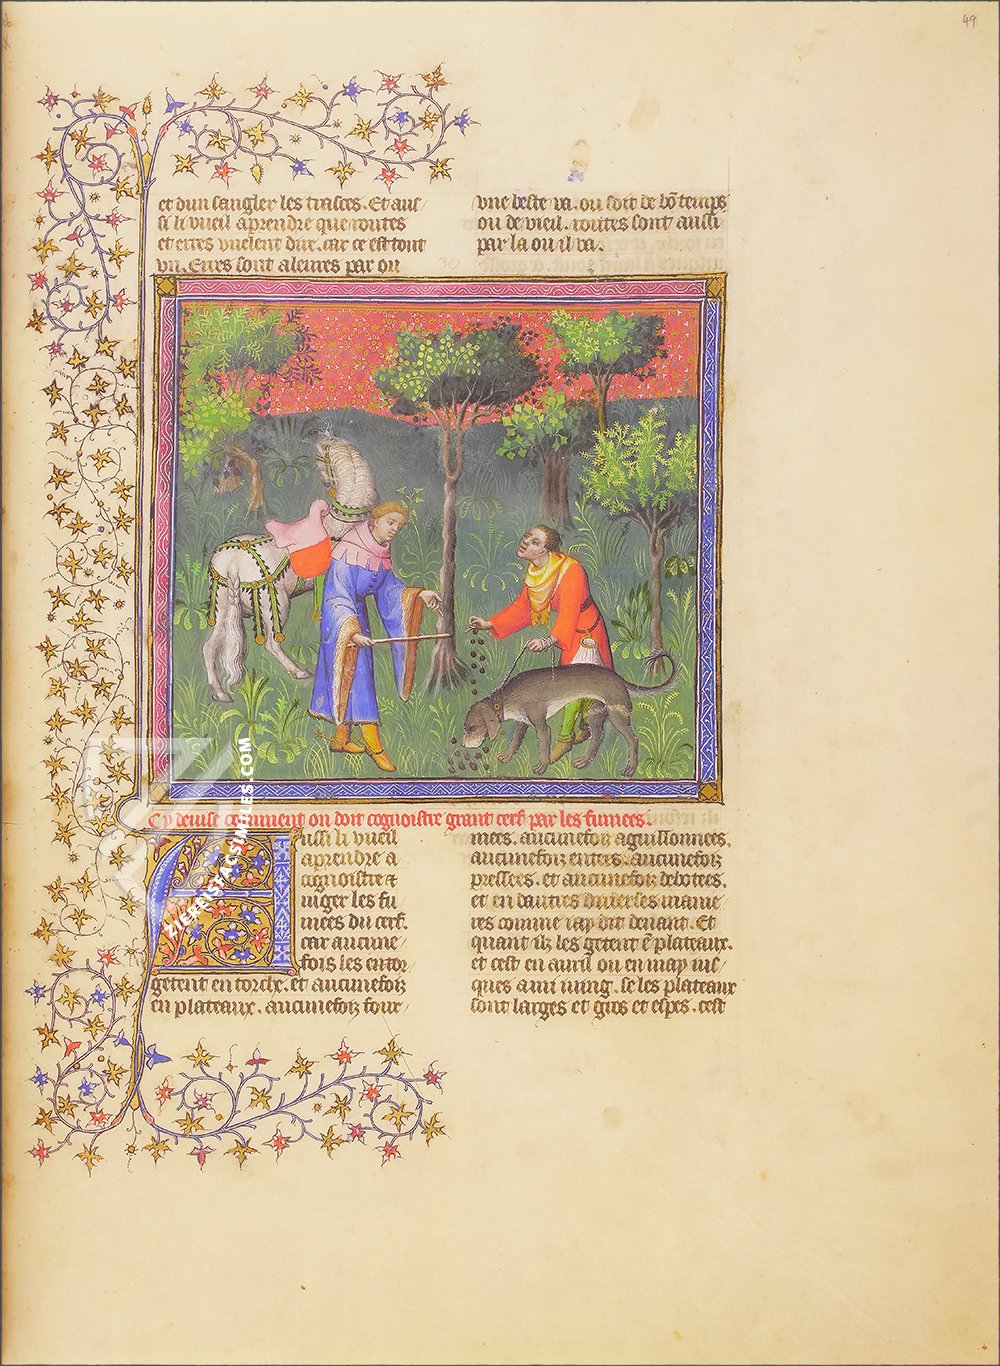 49
et dun sanglier les trasces. Et aus
si li vueil aprendre que routes
et erres vuelent dire. car ce est tout
vn. Erres sont aleures par ou
vne beste va. ou soit de bõ temps
ou de vieil. routes sont aussi
par la ou il va.
30
Cy deuise comment on doit cognoistre grant cerf par les fumees.
Aussi li vueil
aprendre a
cognoistre et
iuger les fu
mees du cerf.
car aucune
fois les entor
getent en torche. et aucunefoiz
en plateaux. aucunefoiz four
mees. aucunefoiz aguillonnees.
aucunefoiz entees. aucunefoiz
pressees. et aucunefoiz debotees.
et en dautres diuerses manie
res comme iay dit deuant. Et
quant ilz les getent ẽ plateaux.
et cest en auril ou en may ius
ques a mi iuing. se les plateaux
sont larges et gros et espes. cest
ZIEREISFACSIMILES.COM